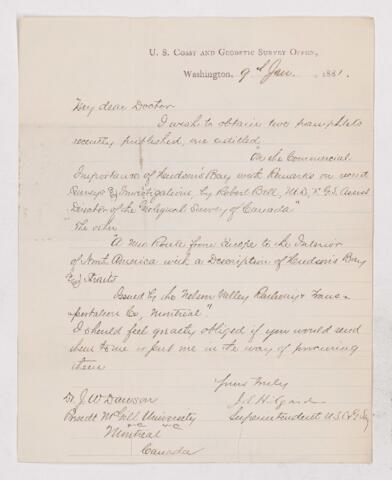 U. S. COAST AND GEODETIC SURVEY OFFICE,
Washington, 9th Jan. 1881.
My dear Doctor
I wish to obtain two pamphlets
recently published, one entitled
"On the Commercial
Importance of Hudson's Bay with Remarks on recent
Surveys & Investigations, by Robert Bell, M.D. F.G.S. Assist
Director of the Geological Survey of Canada"
"The other
"A new Route from Europe to the Interior
of North America with a Description of Hudson's Bay
& Straits
Issued by the Nelson Valley Railway & Trans-
portation Co, Montreal."
I should feel greatly obliged if you would send
them to me or put me in the way of procuring
them
Yours truly
Dr. J. W. Dawson J. E. Hilgard
Presdt McGill University Superintendent U.S.C. & G. Survey
Montreal
Canada